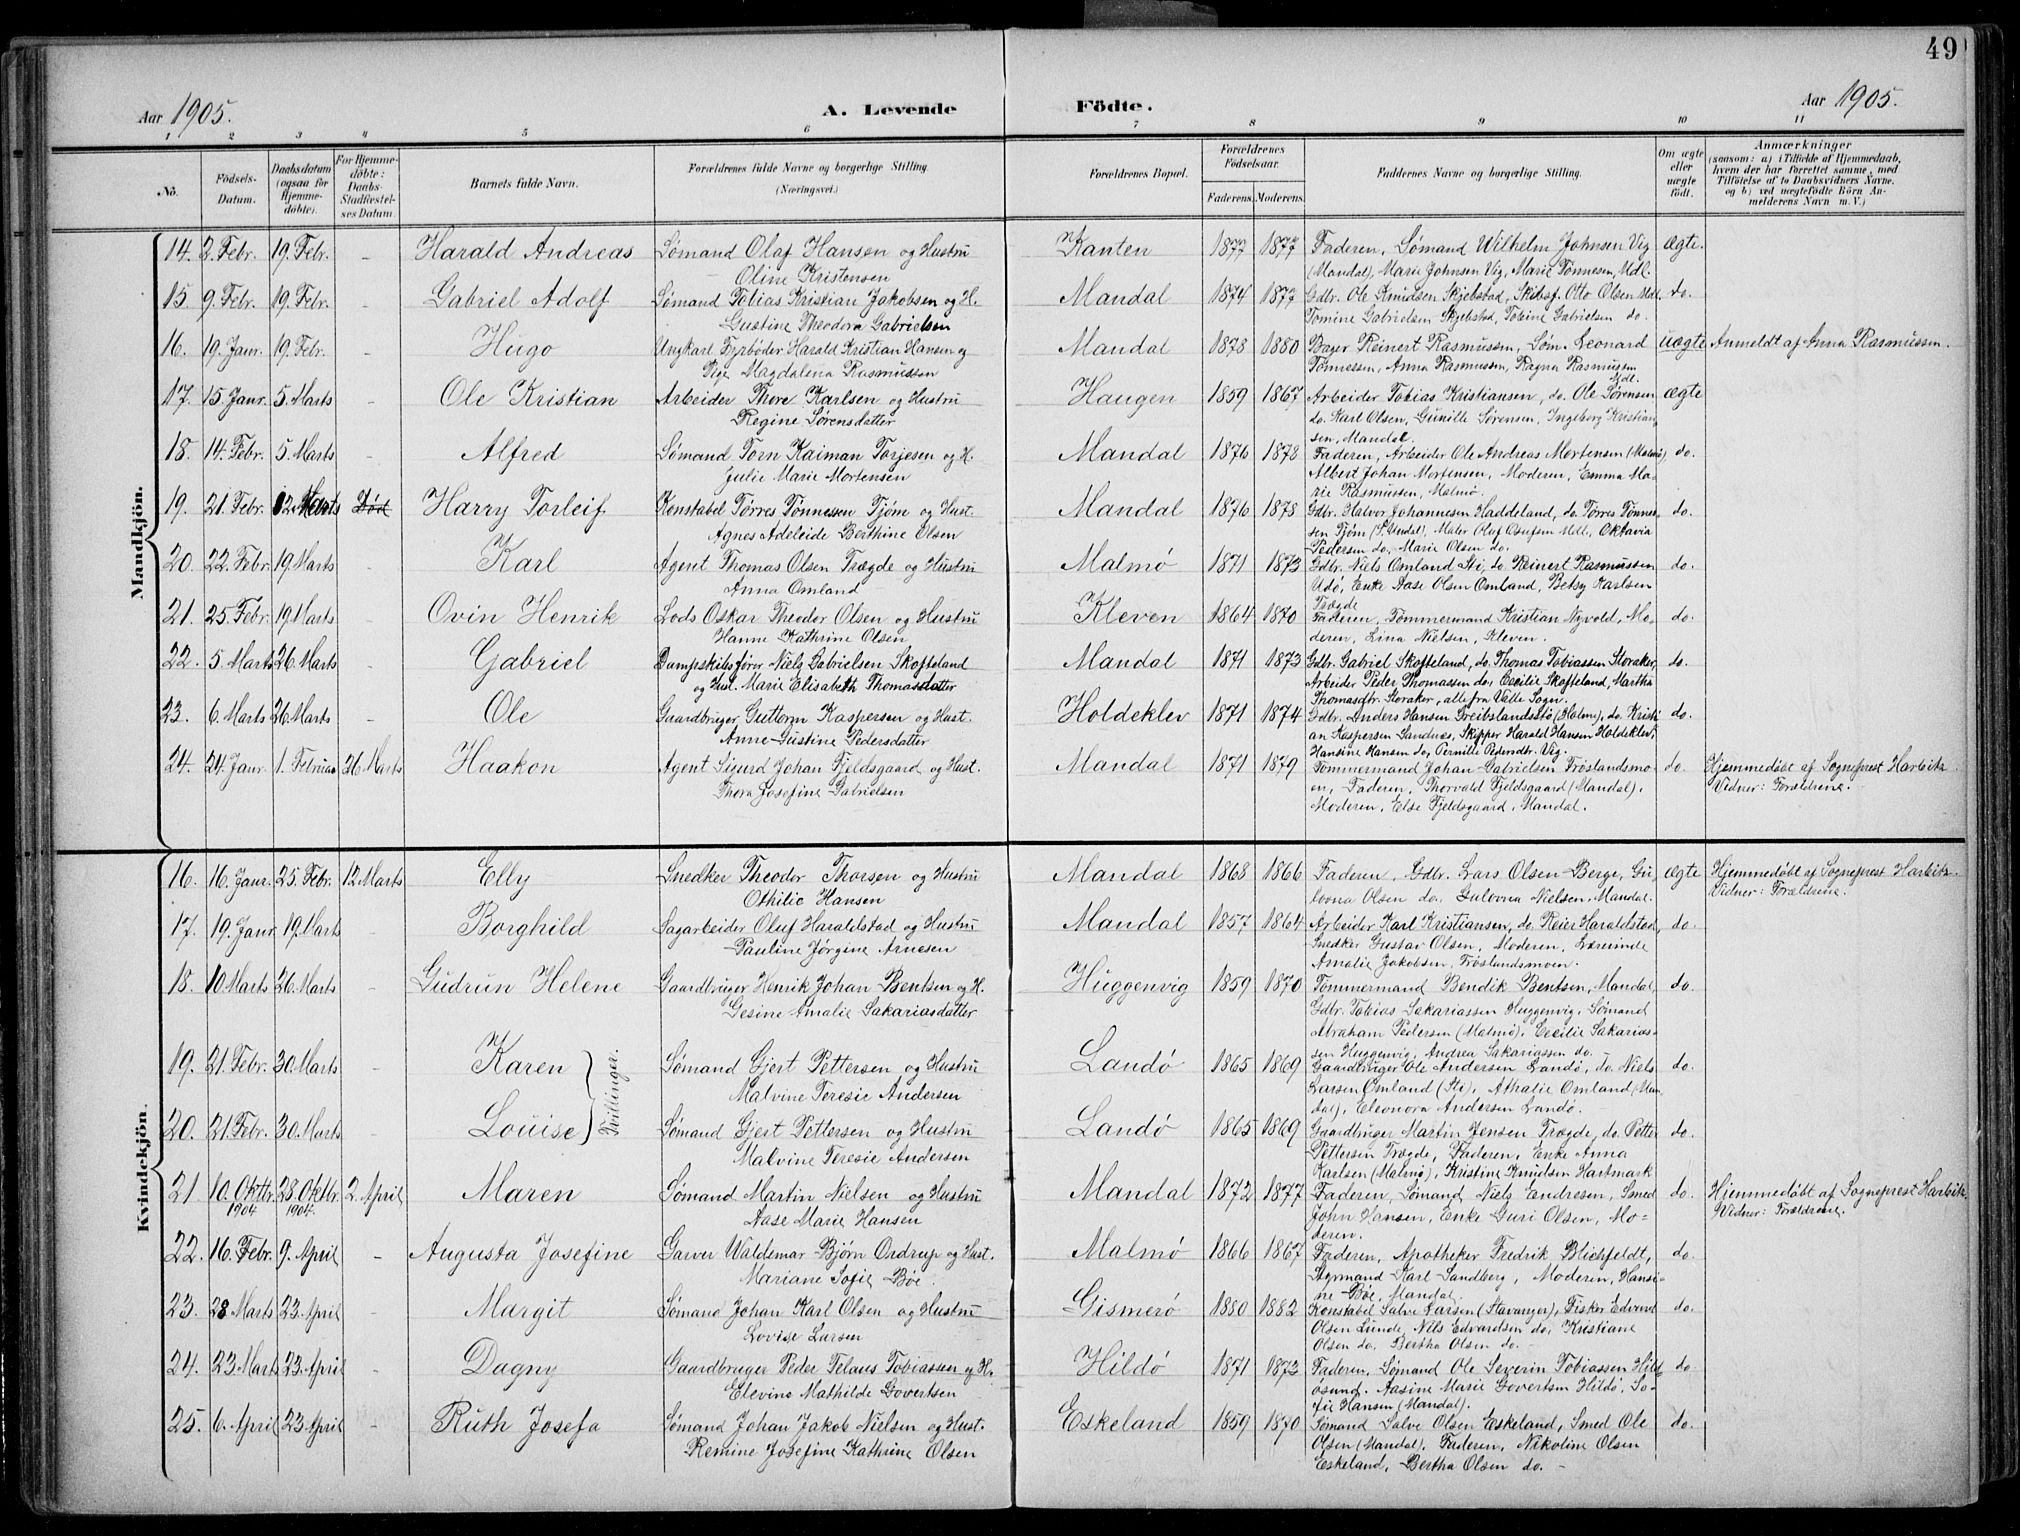 49
Aar 1905.
A. Levende Födte.
Aar 1905.
1 2 3 4 5 6 7 8 9 10 11
No.
Födsels-Datum.
Daabsdatum (ogsaa for Hjemme-döbte).
For Hjemme-döbte: Daabs-Stadfæstel-ses Datum
Barnets fulde Navn.
Forældrenes fulde Navne og borgerlige Stilling (Næringsvei.)
Forældrenes Bopæl.
Forældrenes Födselsaar.
Faderens. Moderens.
Faddernes Navne og borgerlige Stilling.
Om ægte eller uægte födt.
Anmærkninger
(saasom: a) i Tilfælde af Hjemmedaab,
hvem der har forrettet samme, med
Tilföielse af to Daabsvidners Navne.
og b) ved uægtefödte Börn An-
melderens Navn m. V.)
Mandkjön.
14. 2. Febr. 19. Febr. - Harald Andreas Sømand Olaf Hansen og Hustru Kanten 1877 1877 Faderen, Sømand Wilhelm Johnsen Vig ægte.
Oline Kristensen (Mandal), Marie Johnsen Vig, Marie Tønnesen, Mdl.
15. 9. Febr. 19. Febr. - Gabriel Adolf Sømand Tobias Kristian Jakobsen og H. Mandal 1874 1877 Gdbr. Ole Knudsen Skjebstad, Skibsf. Otto Olsen Mdl. do.
Gustine Theodora Gabrielsen Tomine Gabrielsen Skjebstad, Tobine Gabrielsen do.
16. 19. Janr. 19. Febr. - Hugo Ungkarl Fyrbøder Harald Kristian Hansen og Mandal 1878 1880 Bager Reinert Rasmussen, Søm. Leonard uægte Anmeldt af Anna Rasmussen.
Pige Magdalena Rasmussen Tønnessen, Anna Rasmussen, Ragna Rasmussen Mdl.
17. 15. Janr. 5. Marts - Ole Kristian Arbeider Thore Karlsen og Hustru Haugen 1859 1867 Arbeider Tobias Kristiansen, do. Ole Sørensen ægte
Regine Sørensdatter do. Karl Olsen, Gunille Sørensen, Ingeborg Kristian-
sen, Mandal.
18. 14. Febr. 5. Marts - Alfred Sømand Torn Kaiman Torjesen og H. Mandal 1876 1878 Faderen, Arbeider Ole Andreas Mortensen (Malmø) do.
Julie Marie Mortensen Albert Johan Mortensen, Moderen, Emma Ma-
rie Rasmussen, Malmø.
19. 21. Febr. 12. Marts Død Harry Torleif Konstabel Tørres Tønnessen Tjøm og Hust. Mandal 1876 1878 Gdbr. Halvor Johannesen Haddeland, do. Tørres Tønnes- do.
Agnes Adeleide Berthine Olsen sen Tjøm (S. Undal), Maler Oluf Osufsen Mdl., Oktavia
Pedersen do., Marie Olsen do.
20. 22. Febr. 19. Marts - Karl Agent Thomas Olsen Trægde og Hustru Malmø 1871 1873 Gdbr. Niels Omland Stø, do. Reinert Rasmussen do.
Anna Omland Udø, Enke Aase Olsen Omland, Betsy Karlsen
Trægde
21. 25. Febr. 19. Marts - Ovin Henrik Lods Oskar Theodor Olsen og Hustru Kleven 1864 1870 Faderen, Tømmermand Kristian Nyvold, Mo- do.
Hanne Kathrine Olsen deren, Lina Nielsen, Kleven.
22. 5. Marts 26. Marts - Gabriel Dampskibsfører Niels Gabrielsen Skofteland Mandal 1871 1873 Gdbr. Gabriel Skofteland, do. Thomas Tobiassen Storaker, do.
og Hust. Marie Elisabeth Thomasdatter Arbeider Peder Thomassen do., Cecilie Skofteland, Martha
Thomasdtr. Storaker, alle fra Valle Sogn.
23. 6. Marts 26. Marts - Ole Gaardbruger Guttorm Kaspersen og Hust. Holdeklev 1871 1874 Gdbr. Anders Hansen Freibslandsstø (Holme), do. Kristi- do.
Anne Gustine Pedersdatter an Kaspersen Sandnæs, Skipper Harald Hansen Holdeklev,
Hansine Hansen do., Pernille Pedersdtr. Vig.
24. 24. Janr. 1. Februar 26. Marts Haakon Agent Sigurd Johan Fjeldsgaard og Hust. Mandal 1871 1879 Tømmermand Johan Gabrielsen Frøslandsmo- do. Hjemmedøbt af Sogneprest Harbitz.
Thora Josefine Gabrielsen en, Faderen, Thorvald Fjeldsgaard (Mandal), Vidner: Forældrene.
Moderen, Else Fjeldsgaard, Mandal.
Kvindekjön.
16. 16. Janr. 25. Febr. 12. Marts Elly Snedker Theodor Thorsen og Hustru Mandal 1868 1866 Faderen, Gdbr. Lars Olsen Berge, Gu- ægte Hjemmedøbt af Sogneprest Harbitz.
Othilie Hansen Olsen do., Nielsen, Mandal. Vidner: Forældrene.
17. 19. Janr. 19. Marts - Borghild Sagarbeider Oluf Haraldstad og Hustru Mandal 1857 1864 Arbeider Karl Kristiansen, do. Reier Haraldstad, do.
Pauline Jørgine Arnesen Snedker Gustav Olsen, Moderen, Lærerinde
Amalie Jakobsen, Frøslandsmoen.
18. 10. Marts 26. Marts - Gudrun Helene Gaardbruger Henrik Johan Bentsen og H. Huggenvig 1859 1870 Tømmermand Bendik Bentsen, Mandal, do.
Gesine Amalie Sakariasdatter Gdbr. Tobias Sakariassen Huggenvig, Sømand
Abraham Pedersen (Malmø), Cecilie Sakarias-
sen Huggenvig, Andrea Sakariassen do.
19. 21. Febr. 30. Marts - Karen Tvillinger. Sømand Gjert Pettersen og Hustru Landø 1865 1869 Gaardbruger Ole Andersen Landø, do. Niels do.
Malvine Teresie Andersen Larsen Omland (Stø), Athalie Omland (Man-
dal), Eleonora Andersen Landø.
20. 21. Febr. 30. Marts - Louise Sømand Gjert Pettersen og Hustru Landø 1865 1869 Gaardbruger Martin Jensen Trægde, do. Petter do.
Malvine Teresie Andersen Pettersen Trægde, Faderen, Enke Anna
Karlsen (Malmø), Kristine Knudsen Hartmark
21. 10. Oktbr. 1904 28. Oktbr. 1904. 2. April Maren Sømand Martin Nielsen og Hustru Mandal 1872 1877 Faderen, Sømand Niels Endresen, Smed do. Hjemmedøbt af Sogneprest Harbitz
Aase Marie Hansen John Hansen, Enke Guri Olsen, Mo- Vidner: Forældrene.
deren.
22. 16. Febr. 9. April - Augusta Josefine Garver Waldemar Bjørn Ordrup og Hust. Malmø 1866 1867 Faderen, Apotheker Fredrik Blichfeldt, do.
Mariane Sofie Bøe. Styrmand Karl Sandberg, Moderen, Hansi-
ne Bøe, Mandal.
23. 28. Marts 23. April - Margit Sømand Johan Karl Olsen og Hustru Gismerø 1880 1882 Konstabel Salve Larsen (Stavanger), Fisker Edvard do.
Lovise Larsen Olsen Lunde, Nils Edvardsen do., Kristiane
Olsen do., Bertha Olsen do.
24. 23. Marts 23. April - Dagny Gaardbruger Peder Telaus Tobiassen og H. Hildø 1871 1873 Faderen, Sømand Ole Severin Tobiassen Hild- do.
Elevine Mathilde Govertsen øsund. Aasine Marie Govertsen Hildø, So-
fie Hansen (Mandal).
25. 6. April 23. April - Ruth Josefa Sømand Johan Jakob Nielsen og Hust. Eskeland 1859 1870 Sømand Salve Olsen Eskeland, Smed Ole do.
Remine Josefine Kathrine Olsen Olsen (Mandal), Faderen, Nikoline Olsen
Eskeland, Bertha Olsen do. -